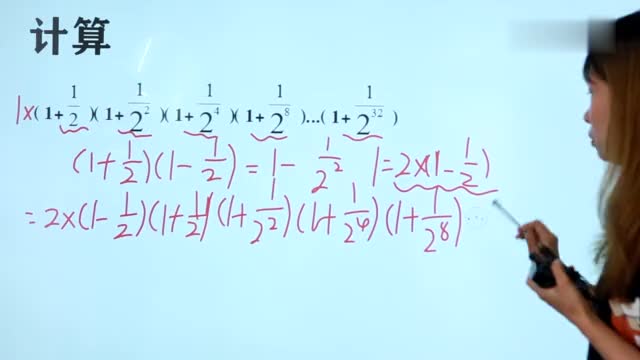 计算
1×(1+1/2)(1+1/2²)(1+1/2⁴)(1+1/2⁸)...(1+1/2³²)
(1+1/2)(1-1/2)=1-1/2² 1=2×(1-1/2)
=2×(1-1/2)(1+1/2)(1+1/2²)(1+1/2⁴)(1+1/2⁸)...